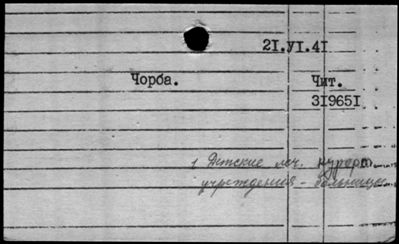 21.УІ.41
Чорба.
Чит.
319651
1 Детские леч. курорт.
учреждения - больницы